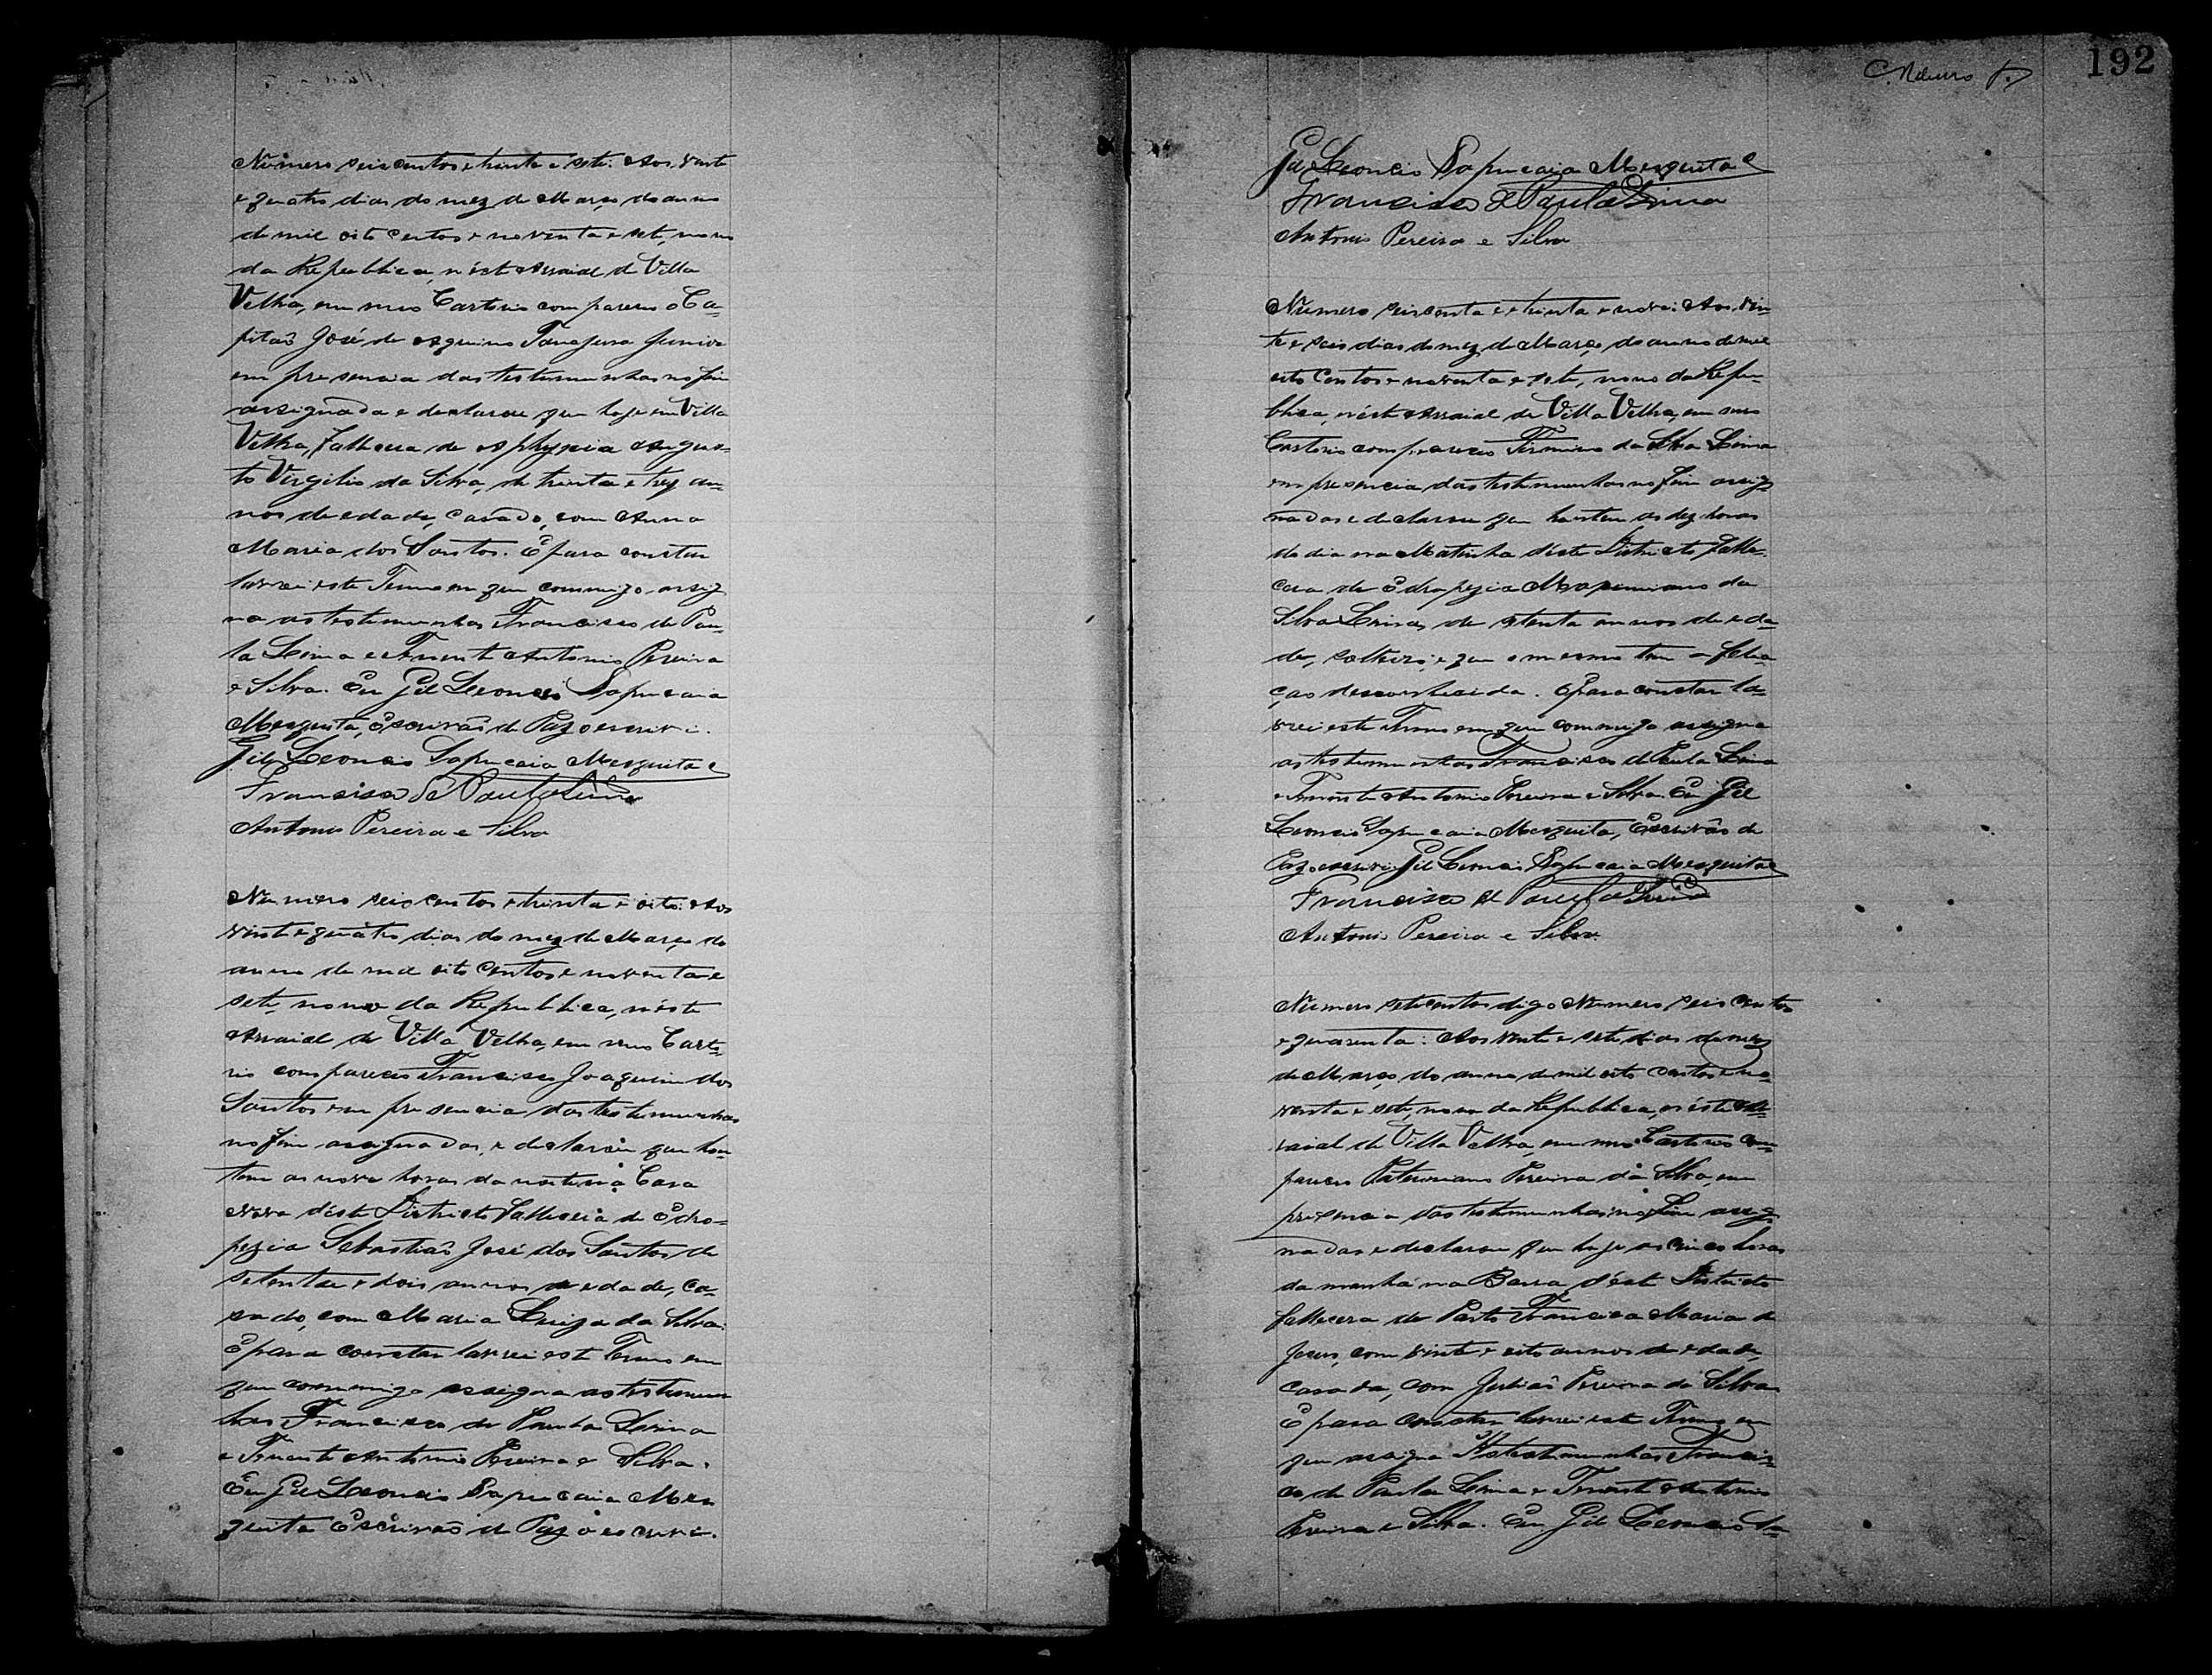 Número seis centos e trinta e sete: Aos vinte
e quatro dias do mez de Março do anno
de mil oito centos e noventa e sete, nono
da Republica, nést Arraial de Villa
Velha, em meo Cartorio compareceo o Ca-
pitaõ José de Aquino Tanajura Junior
em presencia das testemunhas no fim
assignada e declarou que hoje em Villa
Velha, fallecera de Asphyxia Augus-
to Virgilio da Silva, de trinta e trez an-
nos de edade, Casado, com Anna
Maria dos Santos. E para constar
lavrei este Termo em que commigo assig
na as testemunhas Francisco de Pau-
la Lima e Tenente Antonio Pereira
e Silva. Eu Gil Leoncio Sapucaia
Mesquita, Escrivaõ de Paz o escrivi.
Gil Leoncio Sapucaia Mesquita
Francisco de Paula Lima
Antonio Pereira e Silva
Numero seis centos e trinta e oito: Aos
vinte e quatro dias do mez de Março do
anno de mil oito centos e noventa e
sete, nono da Republica, néste
Arraial de Villa Velha, em meo Carto-
rio compareceo Francisco Joaquim dos
Santos em presencia das testemunhas
no fim assignadas, e declarou que hon-
tem as nove horas da noite na Casa
Nova déste Districto falleceia de Edro-
pezia Sebastiaõ José dos Santos de
setenta e dois annos de edade, Ca-
sado, com Maria Luiza da Silva.
E para constar lavrei este Termo em
que commigo assigna as testemun
has Francisco de Paula Lima
e Tenente Antonio Pereira e Silva.
Eu Gil Leoncio Sapucaia Mes
quita Escrivaõ de Paz o escrivi.
192
Gil Leoncio Sapucaia Mesquita
Francisco de Paula Lima
Antonio Pereira e Silva
Numero seiscenta e trinta e nove: Aos vin-
te e seis dias do mez de Março do anno de mil
oito centos e noventa e sete, nono da Repu-
blica, néste Arraial de Villa Velha, em meo
Cartorio compareceo Firmino da Silva Lima
em presencia das testemunhas no fim assig-
nadas e declarou que hontem as dez horas
do dia na Matinha déste Districto falle-
cera de Edropezia Maximiano da
Silva Lima, de setenta annos de eda-
de, solteiro, e que o mesmo tem a filia-
çaõ desconhecida. E para constar la-
vrei este Termo em que commigo assigna
as testemunhas Francisco de Paula Lima
e Tenente Antonio Pereira e Silva. Eu Gil
Leoncio Sapucaia Mesquita, Escrivão de
Paz o escrivi. Gil Leoncio Sapucaia Mesquita
Francisco de Paula Lima
Antonio Pereira e Silva
Numero setecentos digo Numero seis centos
e quarenta: Aos vinte e sete dias do mez
de Março do anno de mil oito centos e no-
venta e sete, nono da Republica, néste Ar-
raial de Villa Velha, em meo Cartorio com-
pareceo Pereira da Silva, em
presencia das testemunhas no fim assig-
nadas e declarou que hoje as cinco horas
da manhã na Barra d'éste Districto
fallecera de Parto Francisca Maria de
Jesus, com vinte e oito annos de edade,
casada, com Julião Pereira da Silva
E para constar lavrei este Termo em
que assigna As testemunhas Francis-
co de Paula Lima e Tenente Antonio
Pereira e Silva. Eu Gil Leoncio Sa-